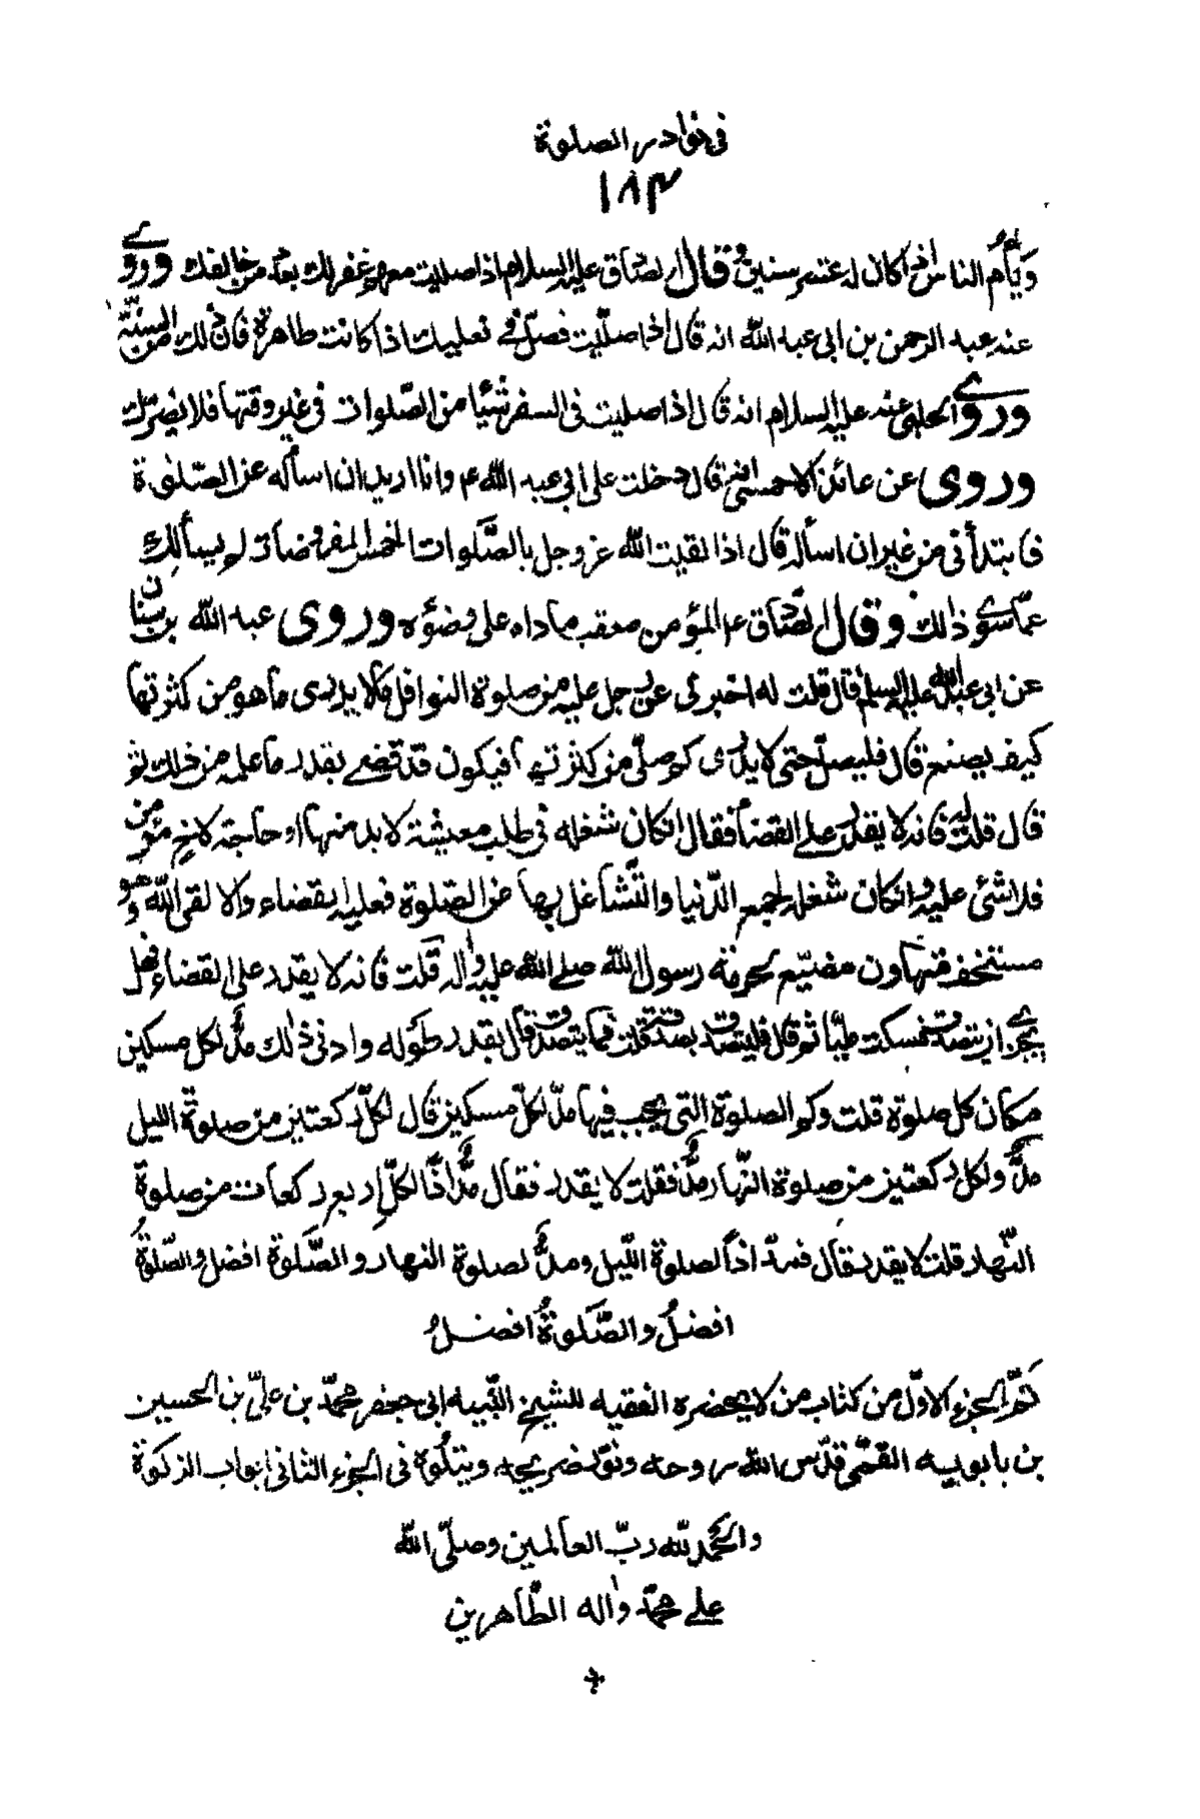 في نوادر الصلوة
١٨٣
ويأم الناس اذا كان له عشر سنين وقال الصادق عليه السلام اذا صليت معهم غفر لك بعدد من خالفك وروى
عنه عبد الرحمن بن ابي عبد الله انه قال اذا صليت فصل في نعليك اذا كانت طاهرة فان ذلك من السنة
وروى الحلبي عنه عليه السلام انه قال اذا صليت في السفر شيئا من الصلوات في غير وقتها فلا يضرك
وروى عن عائذ الاحمسي انه قال دخلت على ابي عبد الله ع م وانا اريد ان اسأله عن الصلوة
فابتدأني من غير ان اسأله قال اذا لقيت الله عز وجل بالصلوات الخمس المفروضات لم يسألك
عما سوى ذلك وقال الصادق ع م المؤمن معقب مادام على وضوئه وروى عبد الله بن سنان
عن ابي عبد الله عليه السلم قال قلت له اخبرني عن رجل عليه من صلوة النوافل ما لا يدرى ما هو من كثرتها
كيف يصنع قال فليصل حتى لا يدرى كم صلى من كثرتها فيكون قد قضى بقدر ما علمه من ذلك ثم
قال قلت له فانه لا يقدر على القضاء فقال ان كان شغله في طلب معيشة لا بد منها او حاجة لاخ مؤمن
فلا شئ عليه وان كان شغله لجمع الدنيا والتشاغل بها عن الصلوة فعليه القضاء والا لقى الله وهو
مستخف متهاون مضيع لحرمة رسول الله صلى الله عليه واله قلت فانه لا يقدر على القضاء فهل
يجزى ان يتصدق فسكت مليا ثم قال فليتصدق بصدقة قلت فما يتصدق قال بقدر طوله وادنى ذلك مد لكل مسكين
مكان كل صلوة قلت وكم الصلوة التي يجب فيها مد لكل مسكين قال لكل ركعتين من صلوة الليل
مد ولكل ركعتين من صلوة النهار مد فقلت لا يقدر فقال مد اذا لكل اربع ركعات من صلوة
النهار قلت لا يقدر قال فمد اذا لصلوة الليل ومد لصلوة النهار والصلوة افضل والصلوة
افضل والصلوة افضل
تم الجزء الاول من كتاب من لا يحضره الفقيه للشيخ النبيه ابي جعفر محمد بن علي بن الحسين
بن بابويه القمي قدس الله روحه ونور ضريحه ويتلوه في الجزء الثاني ابواب الزكوة
والحمد لله رب العالمين وصلى الله
على محمد واله الطاهرين